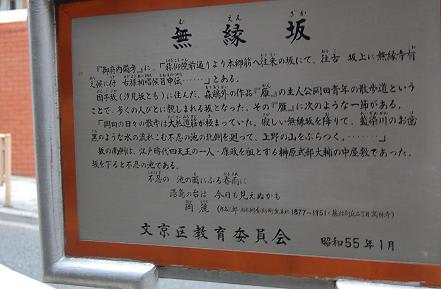 無縁坂
む えん ざか
『御府内備考』に、「称仰院前通りより本郷筋へ往来の坂にて、往古 坂上に無縁寺有
之候に付 右様相唱候旨申伝……」とある。
団子坂(汐見坂とも)に住んだ、森鴎外の作品『雁』の主人公岡田青年の散歩道という
ことで、多くの人びとに親しまれる坂となった。その『雁』に次のような一節がある。
「岡田の日々の散歩は大抵道筋が極まっていた。寂しい無縁坂を降りて、藍染川のお歯
黒のような水の流れこむ不忍の池の北側を廻って、上野の山をぶらつく。……」
坂の南側は、江戸時代四天王の一人・康政を祖とする榊原式部大輔の中屋敷であった。
坂を下ると不忍の池である。
不忍の 池の面にふる春雨に
湯島の台は 今日も見えぬかも
岡 麓
1877~1951
文京区教育委員会 昭和55年1月